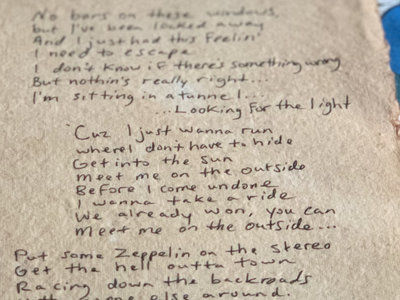 No bars on these windows,
but I've been locked away
And I just had this Feelin'
I need to escape
I don't know if there's something wrong
But nothin's really right...
I'm sitting in a tunnel....
...Looking For the light
'Cuz I just wanna run
where I don't have to hide
Get into the sun
meet me on the outside
Before I come undone
I wanna take a ride
We already won, you can
meet me on the outside...
Put some Zeppelin on the stereo
Get the hell outta town
Racing down the backroads
else around